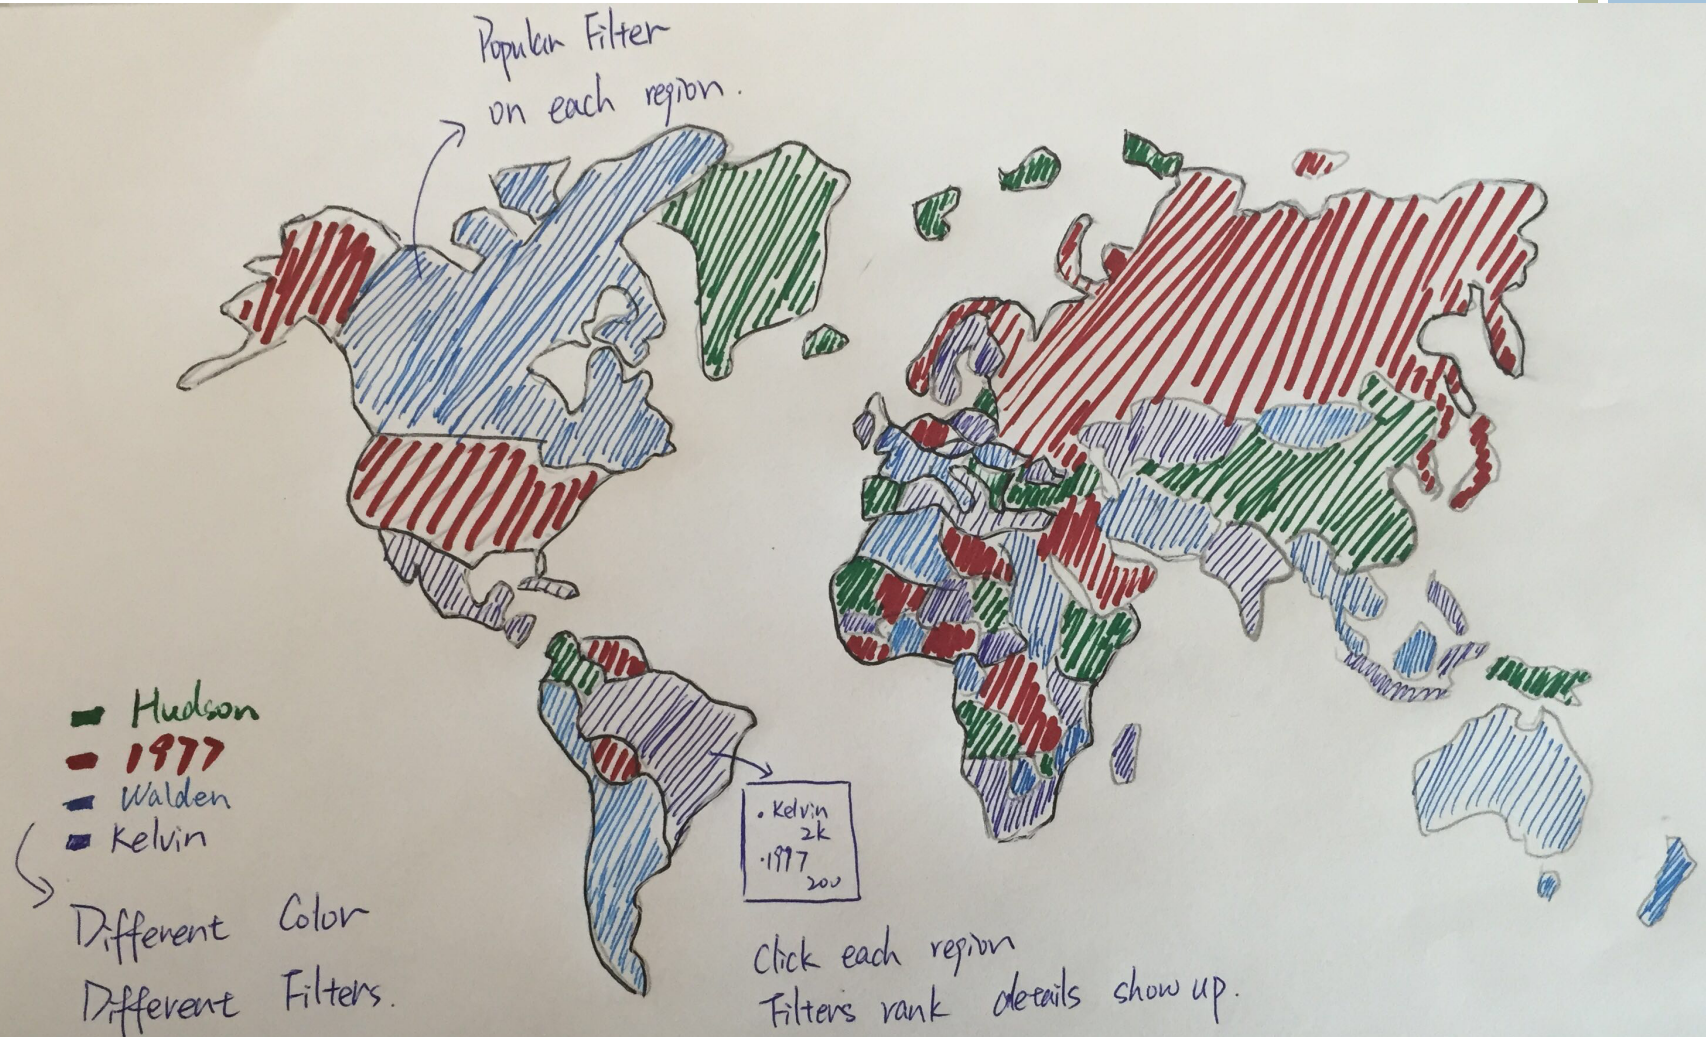 Popular Filter
on each region.
Hudson
1977
Walden
Kelvin
Different Color
Different Filters.
• Kelvin
2k
• 1997
200
Click each region
Filters rank details show up.